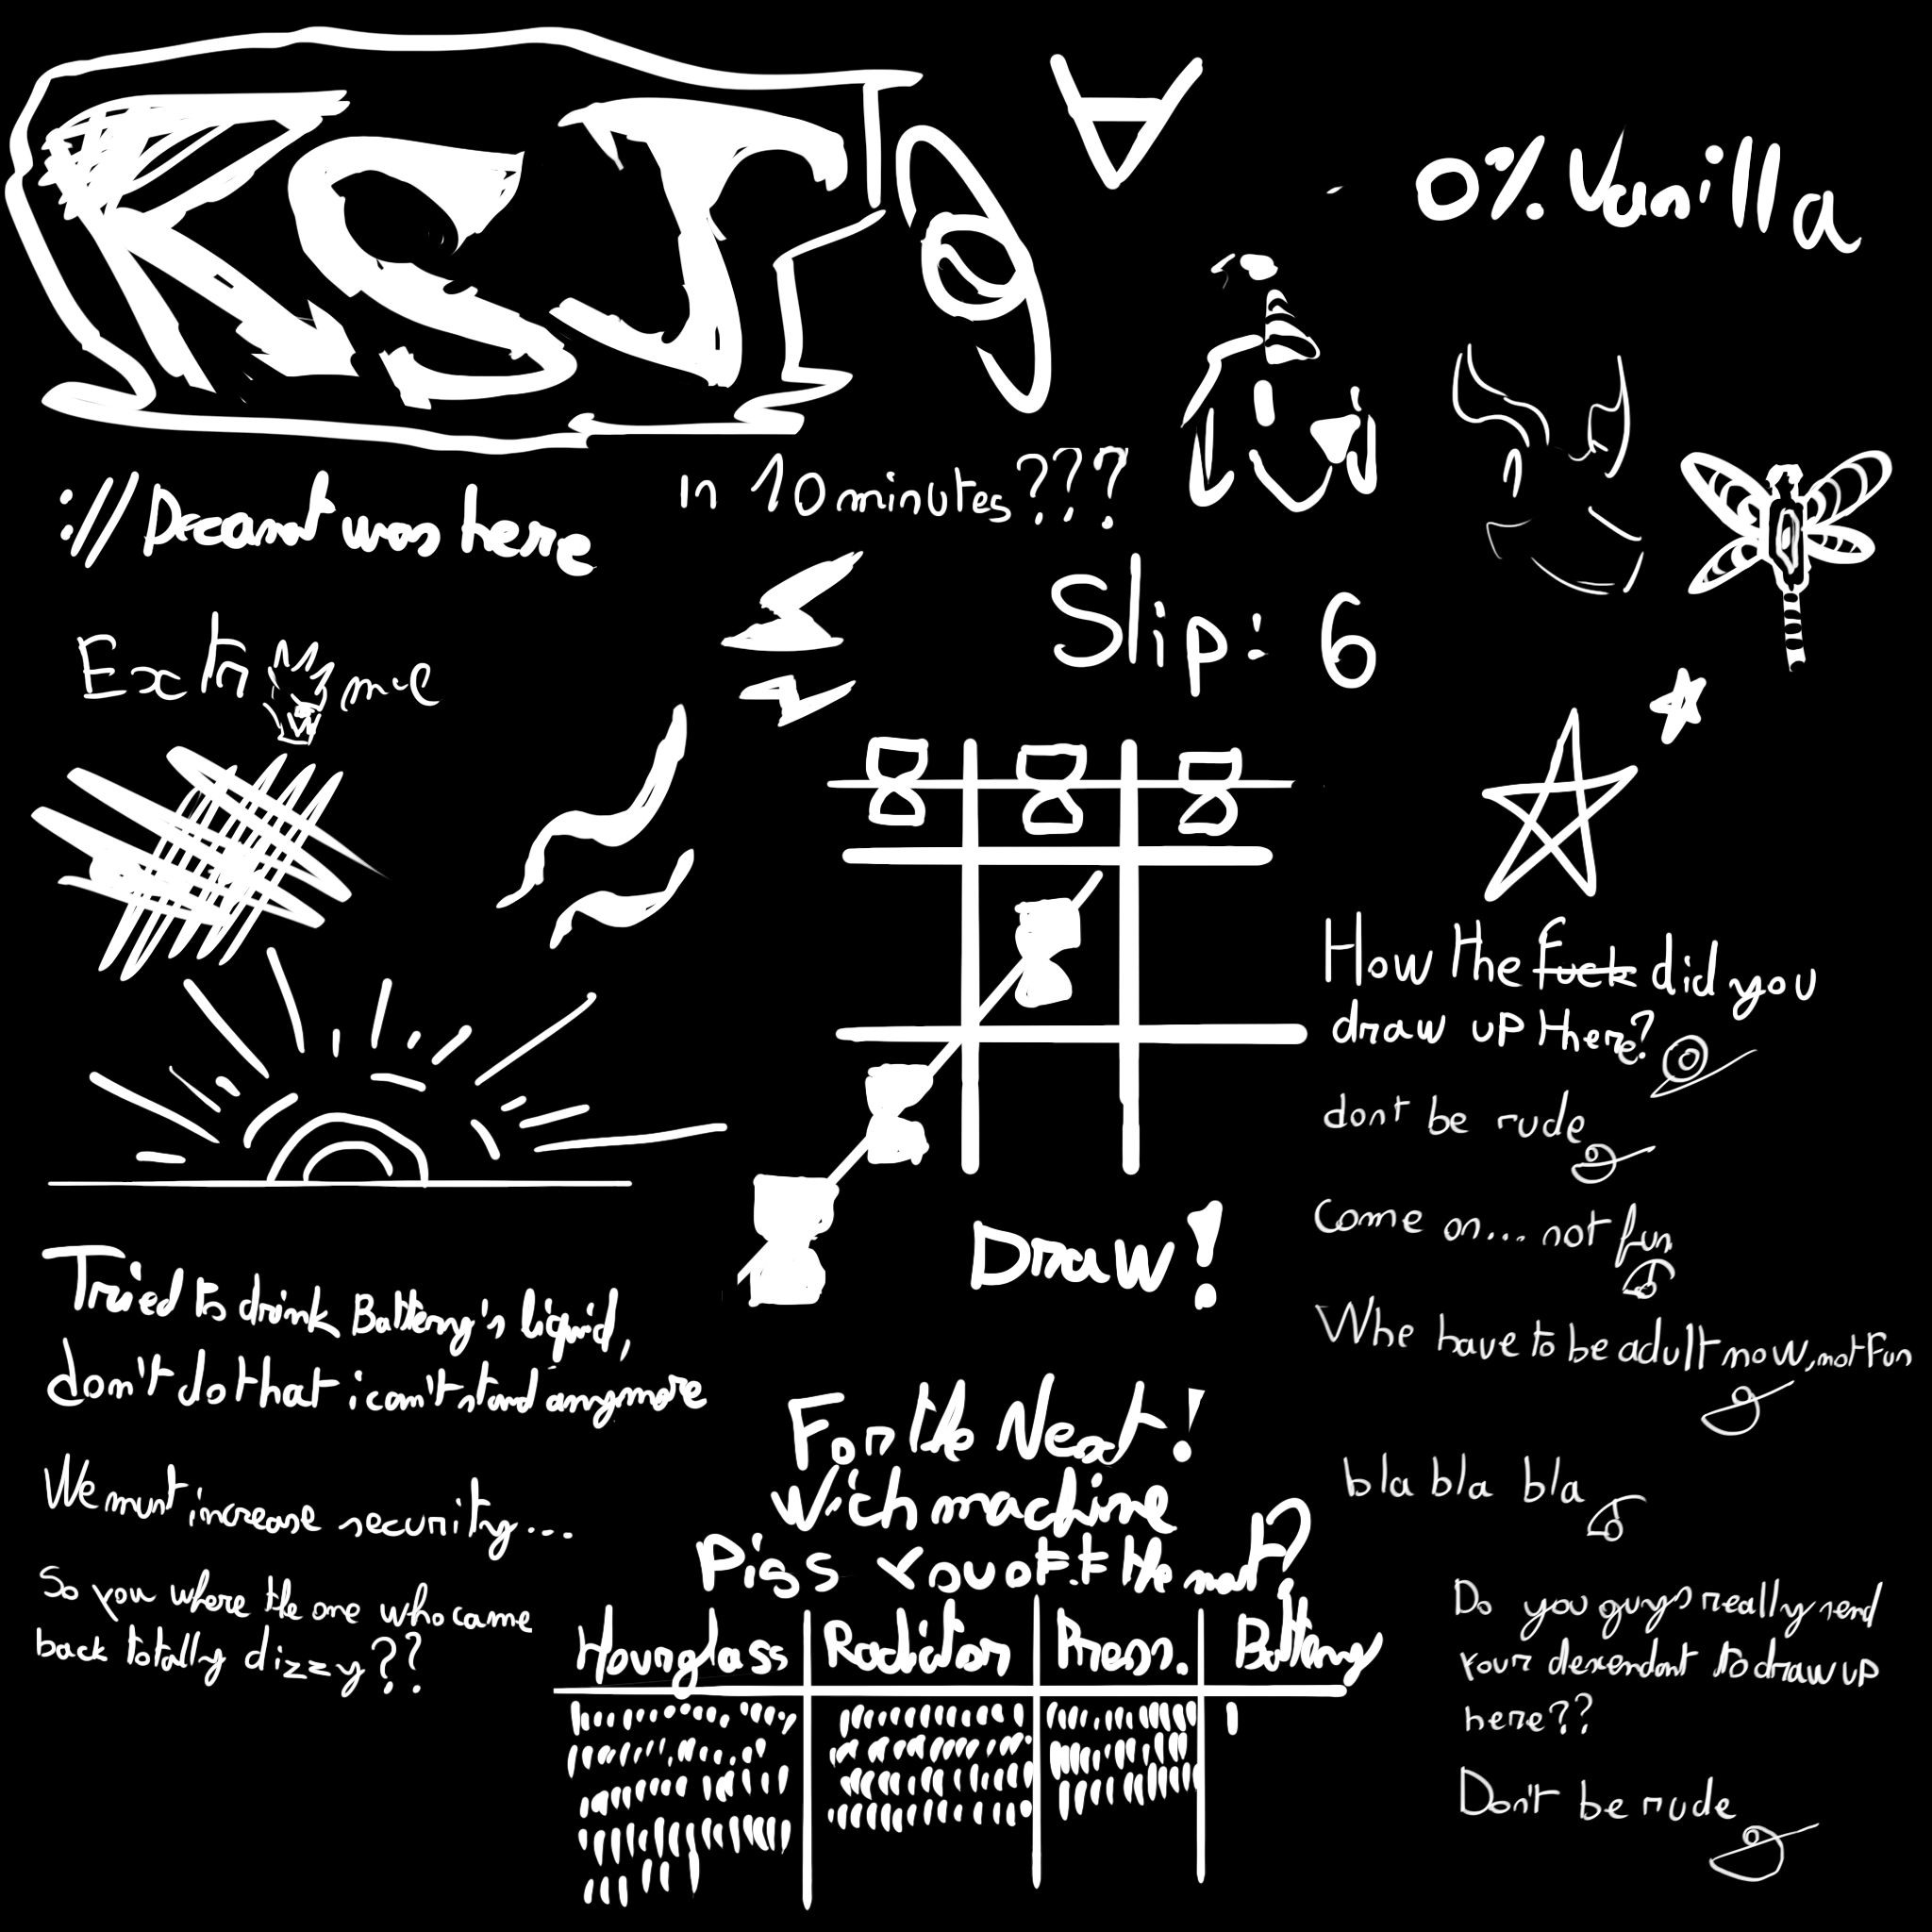 RCJ
0% Vanilla
:// Decard was here
In 10 minutes???
Slip: 6
me
How the fuck did you
draw up there?
dont be rude
Come on... not fun
Whe have to be adult now, not fun
bla bla bla
Do you guys really send
your dexendant to draw up
here??
Don't be rude
Draw!
Tried to drink Battery's liquid,
don't do that i can't stand anymore
We must increase security...
So you where the one who came
back totally dizzy??
For the Next!
Wich machine
Piss You off the most?
Hourglass Radiator Press. Battery